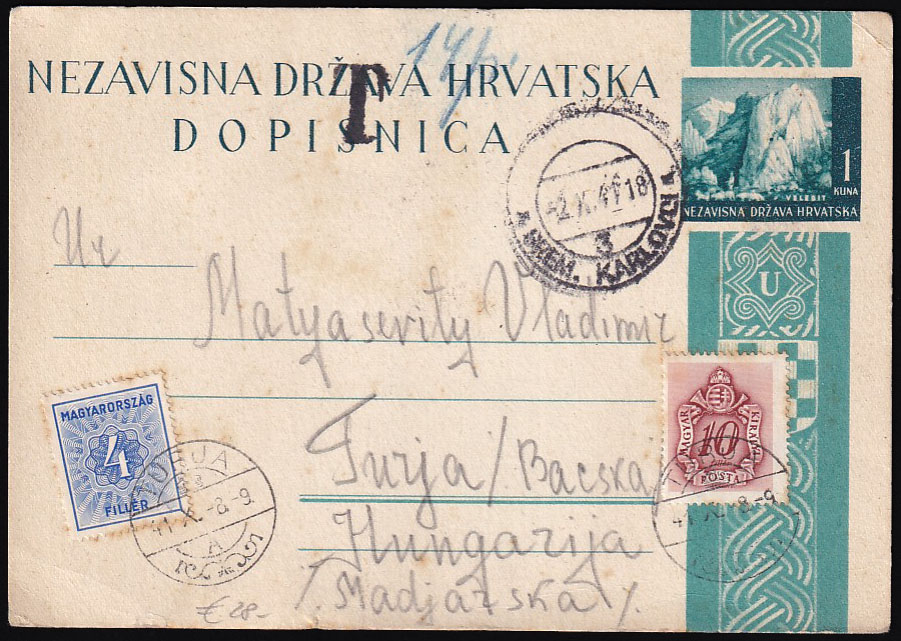 14/
NEZAVISNA DRŽAVA HRVATSKA
T
DOPISNICA
1
KUNA
VELEBIT
NEZAVISNA DRŽAVA HRVATSKA
-2.X.41 18
3
SREM. KARLOVCI
U
Ur
Matyasevity Vladimir
MAGYARORSZÁG
4
FILLÉR
MAGYAR KIRÁLYI
10
POSTA
TURJA
41 X. -8-9
A
41 X. -8-9
Turja/Bacska/
Hungarija
/.Madjarska/.
€ 28-